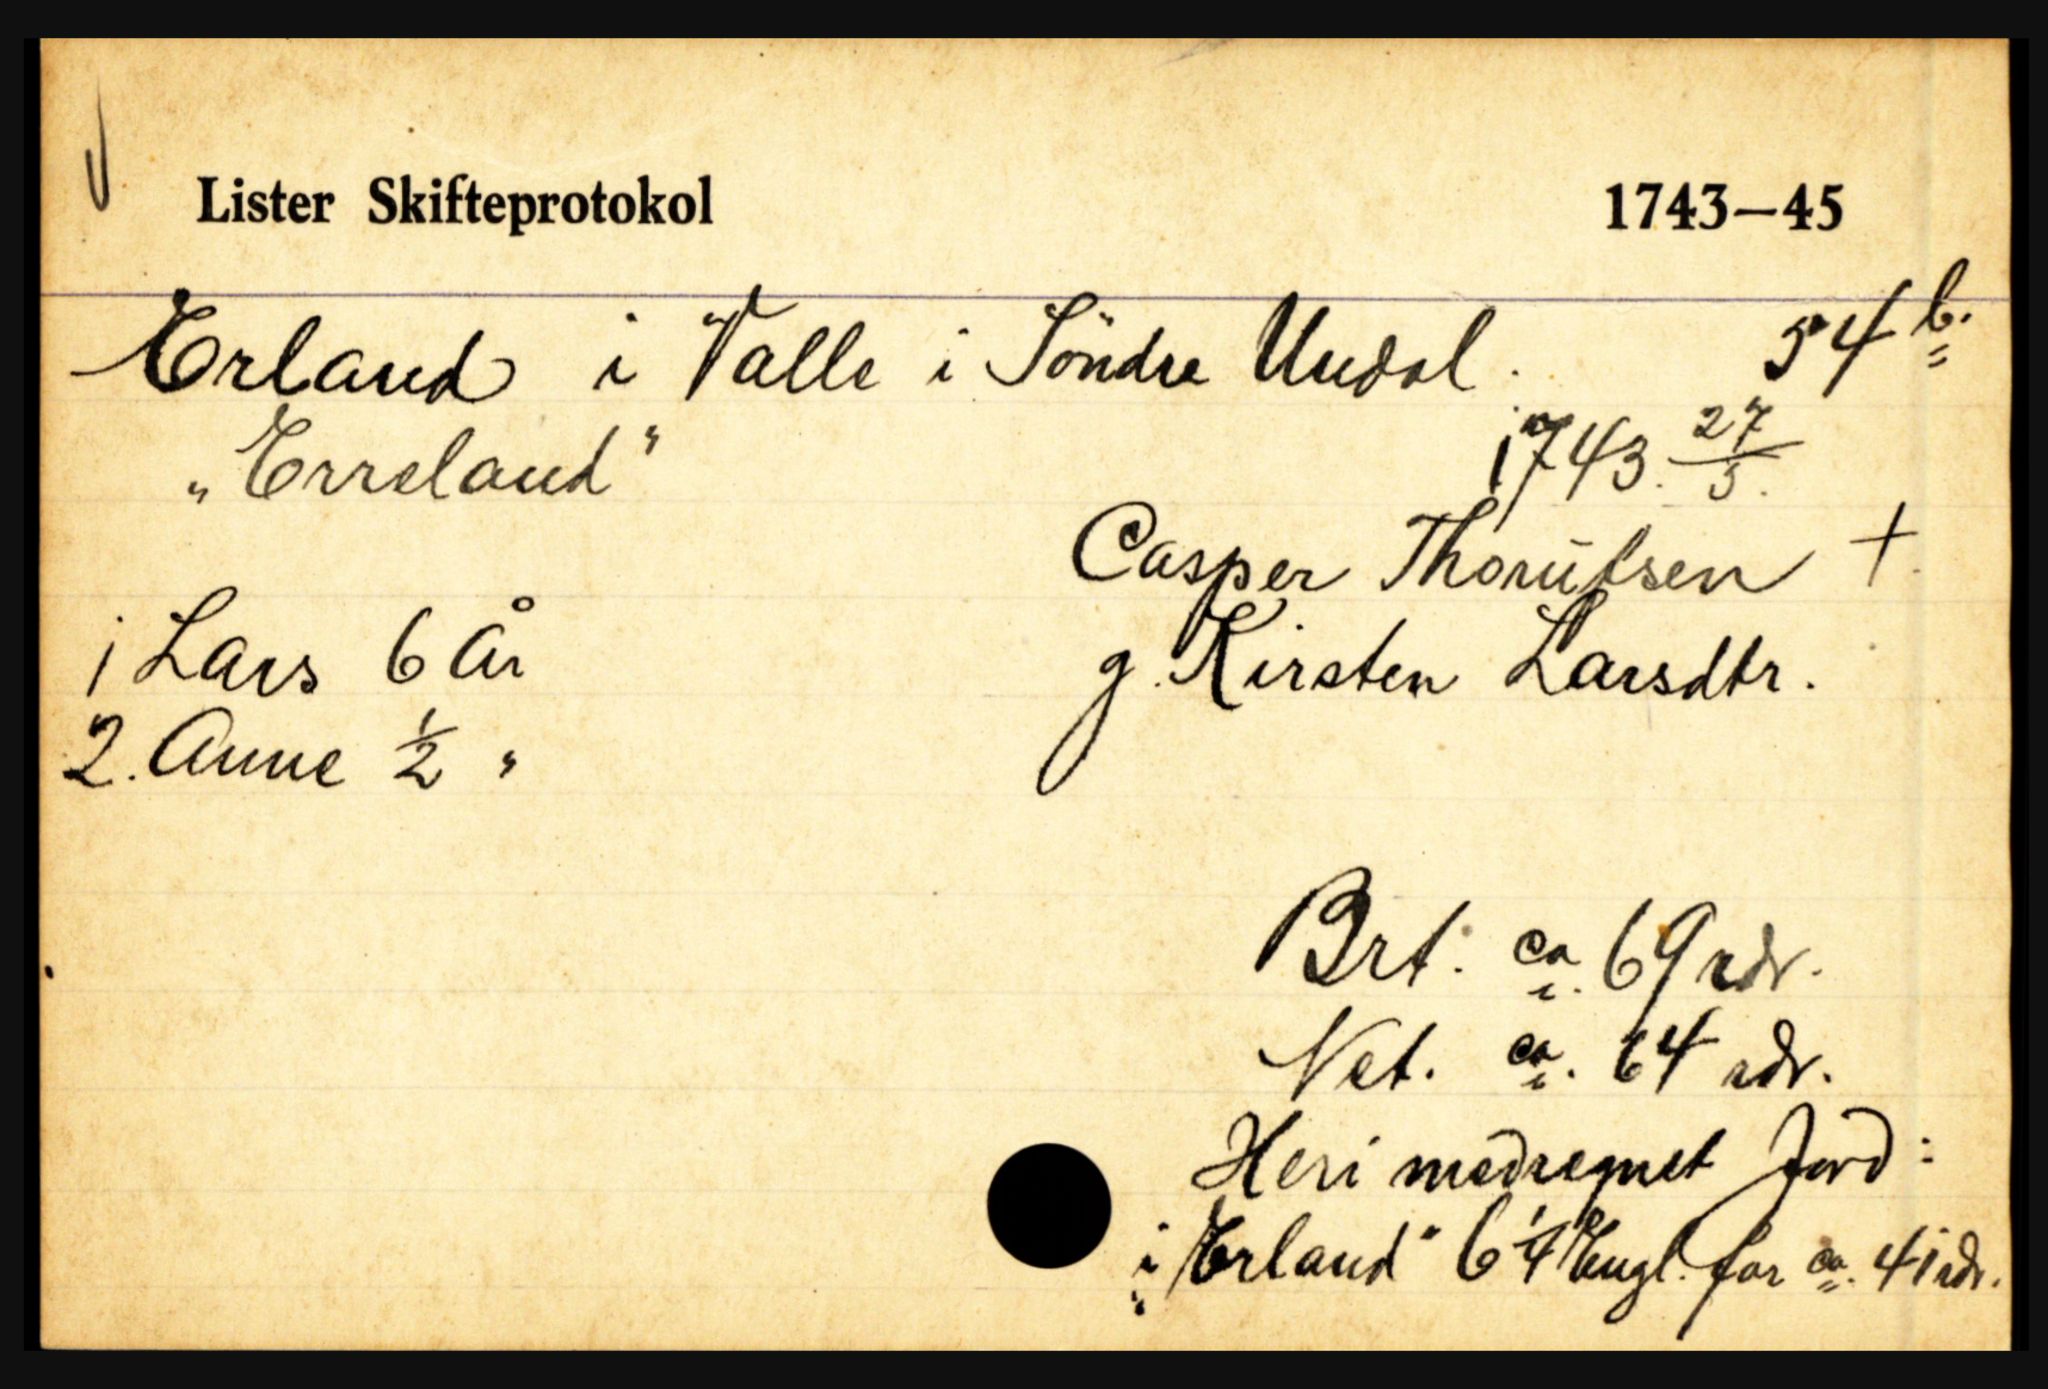 Lister Skifteprotokol 1743–45
Erland i Valle i Söndre Undal. 54 b.
„Erreland" 1743. 27/5.
Casper Thorufsen +.
1 Lars 6 år g. Kirsten Larsdtr.
2. Anne 1/2 "
Brt. ca. 69 rdr.
Net. ca. 64 rdr.
Heri medregnet Jord:
i „Erland" 6 1/4 Engl. for ca. 41 rdr.